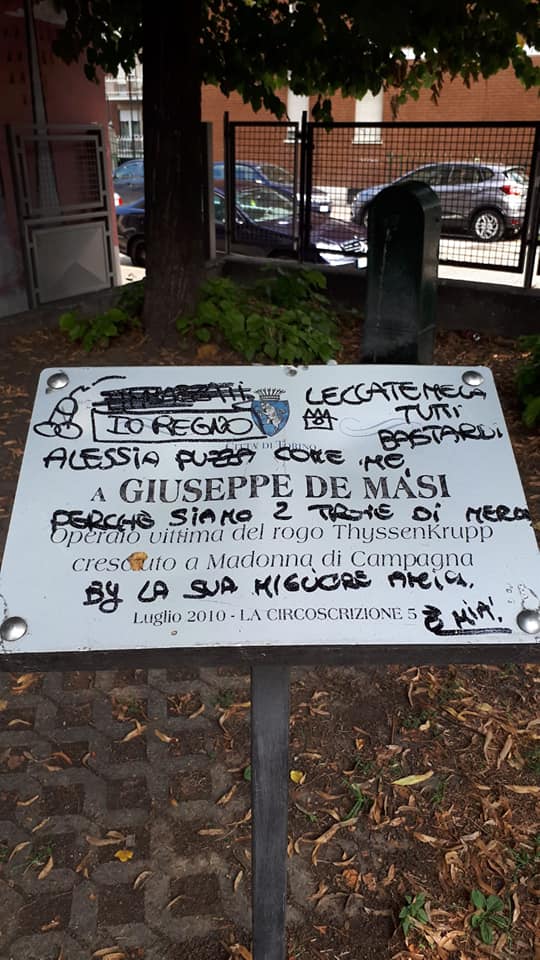 LECCATEMELA
TUTTI
BASTARDI
IO REGNO
CITTÀ DI TORINO
ALESSIA PUZZA COME ME,
A GIUSEPPE DE MASI
PERCHÈ SIAMO 2 TROIE DI MERDA
Operaio vittima del rogo ThyssenKrupp
cresciuto a Madonna di Campagna
BY LA SUA MIGLIORE AMICA.
Luglio 2010 - LA CIRCOSCRIZIONE 5
È MIA!